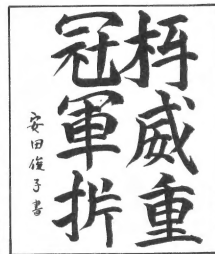 枅威重
冠軍折
安田俊子書